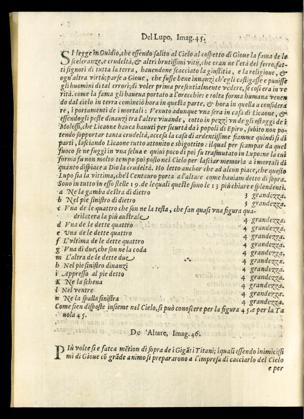 Del Lupo, Imag. 45.
SI legge in Ouidio, che essendo salito al Cielo al cospetto di Gioue la fama de le
sceleranze, e crudeltà, & altri bruttissimi vitij, che eran ne l'età del ferro, fatti
signori di tutta la terra, hauendene scacciato la giustitia, e la religione, &
ogn'altra virtù; parse a Gioue, che fusse bene innanzi ch'egli castigasse e punisse
gli huomini di tal errori, di voler prima presentialmente vedere, se così era in ve-
rità, come la fama gli haueua portato a l'orecchie: e tolta forma humana venen
do dal cielo in terra cominciò hora in questa parte, & hora in quella a considera
re, i portamenti de i mortali: Venuto adunque vna sera in casa di Licaone, &
essendogli poste dinanzi tra l'altre viuande, cotto in pezzi vn de gli
Molossi, che Licaone hauea hauuti per
tendo sopportar tanta crudeltà, accese la casa di ardentissime fiamme quindi si
partì, lasciando Licaone tutto attonito e sbigottito: il qual per scampar da quel
fuoco se ne fuggì in vna selua e quiui poco di poi fu trasformato in Lupo:
forma fu non molto tempo poi posto nel Cielo per lasciar memoria a i mortali di
quanto dispiace a Dio la crudeltà. Ho letto anchor che ad alcun piace, che questo
Lupo sia la vittima, che'l Centauro porta a l'altare come hauiam detto di sopra.
Sono in tutto in esso stelle 19. de le quali quelle sono le 13 più chiare e splendenti.
a Ne la gamba destra di dietro 3 grandezza.
b Nel piè sinistro di dietro 3 grandezza.
c Vna de le quattro che son ne la testa, che fan quasi vna figura qua-
drilatera la più australe 4 grandezza.
d Vna de le dette quattro 4 grandezza.
e Vna de le dette quattro 4 grandezza.
f L'vltima de le dette quattro 4 grandezza.
g Vna di due, che son ne la coda 4 grandezza.
m L'altra de le dette due 4 grandezza.
h Nel piè sinistro dinanzi 4 grandezza.
i Appresso al piè detto 4 grandezza.
k Ne la schena 4 grandezza.
l Nel ventre 4 grandezza.
n Ne la spalla sinistra 5 grandezza.
Come sien disposte insieme nel Cielo, si può conoscere per la figura 45. a per la Ta
uola 45.
De l'Altare, Imag. 46.
PIù volte si è fatta mention di sopra de i Gigãti e Titani; i quali essendo inimicissi
mi di Gioue cõ grãde animo si prepararono a l'impresa di cacciarlo del Cielo
e per